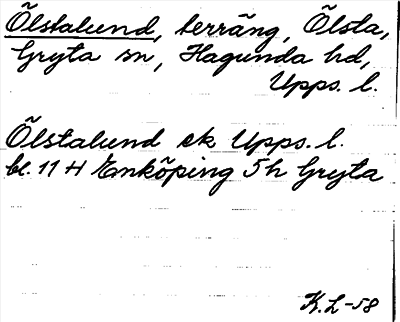 Ölstalund, terräng, Ölsta,
Gryta sn, Hagunda hd,
Upps. l.
Ölstalund ek Upps. l.
bl. 11 H Enköping 5h Gryta
K.L-58